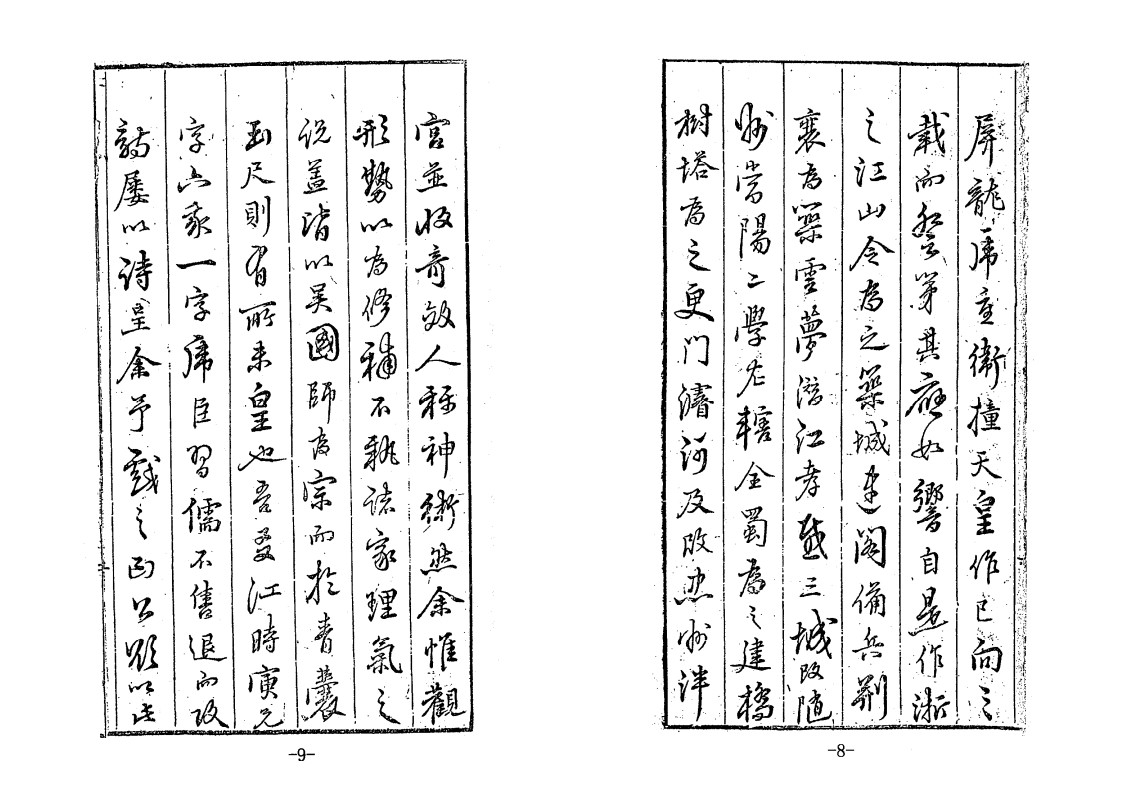 屏龍虎重衝撞天皇作已向之
載而發第其應如響自是作浙
之江山令為之築城連閣備兵荆
襄為築雲夢潛江孝感三城改随
州當陽二學左轄全蜀為之建橋
樹塔為之更門濬河及改忠州泮
-8-
宫並收奇效人称神術然余惟觀
形勢以為修補不執諸家理氣之
说盖皆以吴國師為宗而於青囊
玉尺則有所未皇也吾友江時庚元
字六彖一字席臣習儒不售退而攻
詩屡以詩呈余予戲之曰公欲以此
-9-